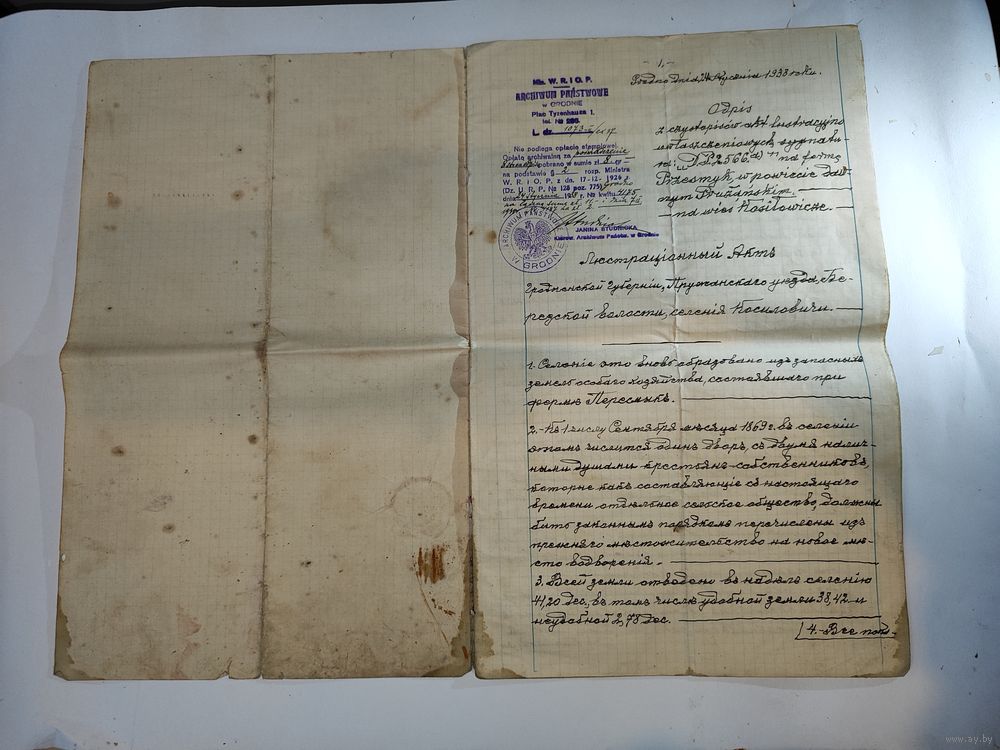 -1.-
Grodno dnia 24 stycznia 1938 roku.
Min. W. R. i O. P.
ARCHIWUM PAŃSTWOWE
w GRODNIE
Plac Tyzenhauza 1.
tel. № 286.
L. dz. 1073
Nie podlega opłacie stemplowej.
Opłatę archiwalną za
pobrano w sumie zł. 8 gr —
na podstawie § 2 rozp. Ministra
W. R. i O. P. z dn. 17-12-1926
(Dz. U. R. P. № 128 poz. 775) Grodno
dnia stycznia № kwitu
JANINA STUDNICKA
Kierow. Archiwum Państw. w Grodnie
ARCHIWUM PAŃSTWOWE W GRODNIE
Odpis
z czystopisów akt lustracyjno
uwłaszczeniowych sygnatu
ra: 2566 na fermę
Przesmyk w powiecie daw
nym Prużańskim.
na wieś Kosiłowicze.
Люстраціонный Актъ
Гродненской Губерніи, Пружанскаго уезда, Бе-
редской волости, селенія Косиловичи.
1. Селеніе это вновь образовано изъ запасныхъ
земель особаго хозяйства, состоявшаго при
ферме Пересмыкъ.
2.- Къ 1 числу Сентября месяца 1869 г. въ селеніи
этомъ числится одинъ дворъ, съ двумя налич-
ными душами крестьян-собственниковъ,
которые какъ составляющіе съ настоящаго
времени отдельное сельское общество, должны
быть законнымъ порядкомъ перечислены изъ
прежняго местожительства на новое ме-
сто водворенія.
3. Всей земли отведено въ наделъ селенію
41,20 дес., въ томъ числе удобной земли 38,42 и
неудобной 2,78 дес.
4.- Все
www.ay.by